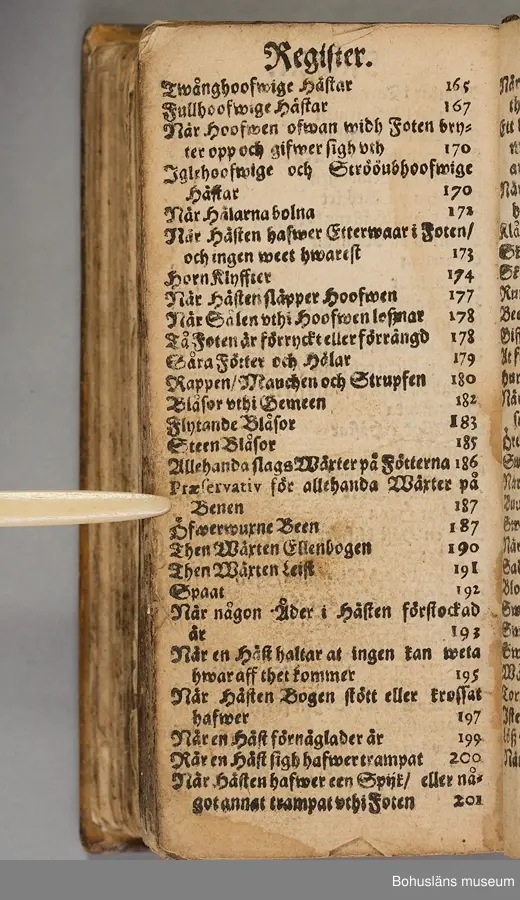 Register.
Twånghoofwige Hästar 165
Fullhoofwige Hästar 167
När Hoofwen ofwan widh Foten bry-
ter opp och gifwer sigh vth 170
Iglehoofwige och Ströoubhoofwige
Hästar 170
När Hälarna bolna 172
När Hästen hafwer Etterwaar i Foten/
och ingen weet hwarest 173
Horn Klyffter 174
När Hästen släpper Hoofwen 177
När Sålen vthi Hoofwen loßnar 178
Tå Foten är förryckt eller förrängd 178
Såra Fötter och Hölar 179
Rappen/ Mauchen och Strupfen 180
Blåsor vthi Gemeen 182
Flytande Blåsor 183
Steen Blåsor 185
Allehanda slags Wäxter på Fötterna 186
Præservativ för allehanda Wäxter på
Benen 187
Öfwerwuxne Been 187
Then Wäxten Ellenbogen 190
Then Wäxten Leist 191
Spaat 192
När någon Åder i Hästen förstockad
är 193
När en Häst haltar at ingen kan weta
hwar aff thet kommer 195
När Hästen Bogen stött eller krossat
hafwer 197
När en Häst förnäglader är 199
När en Häst sigh hafwer trampat 200
När Hästen hafwer een Spijk/ eller nå-
got annat trampat vthi Foten 201
Bohusläns museum